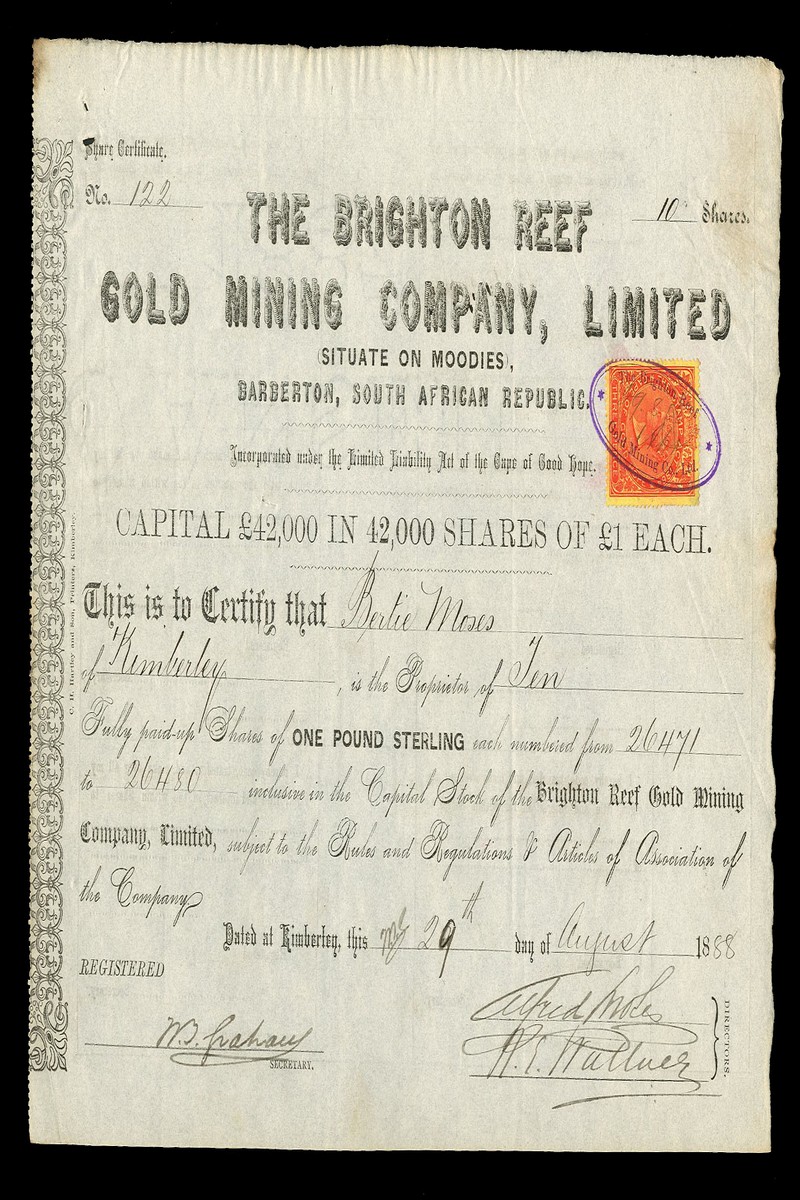 Share Certificate.
No. 122
10 Shares.
THE BRIGHTON REEF
GOLD MINING COMPANY, LIMITED
(SITUATE ON MOODIES),
BARBERTON, SOUTH AFRICAN REPUBLIC.
The Brighton Reef
Gold Mining Co. Ltd.
Incorporated under the Limited Liability Act of the Cape of Good Hope.
CAPITAL £42,000 IN 42,000 SHARES OF £1 EACH.
This is to Certify that Bertie Moses
of Kimberley, is the Proprietor of Ten
Fully paid-up Shares of ONE POUND STERLING each numbered from 26471
to 26480 inclusive in the Capital Stock of the Brighton Reef Gold Mining
Company, Limited, subject to the Rules and Regulations & Articles of Association of
the Company
Dated at Kimberley, this 29th day of August 1888
REGISTERED
W. B. Graham
SECRETARY.
Alfred
DIRECTORS.
C. H. Hartley and Son, Printers, Kimberley.